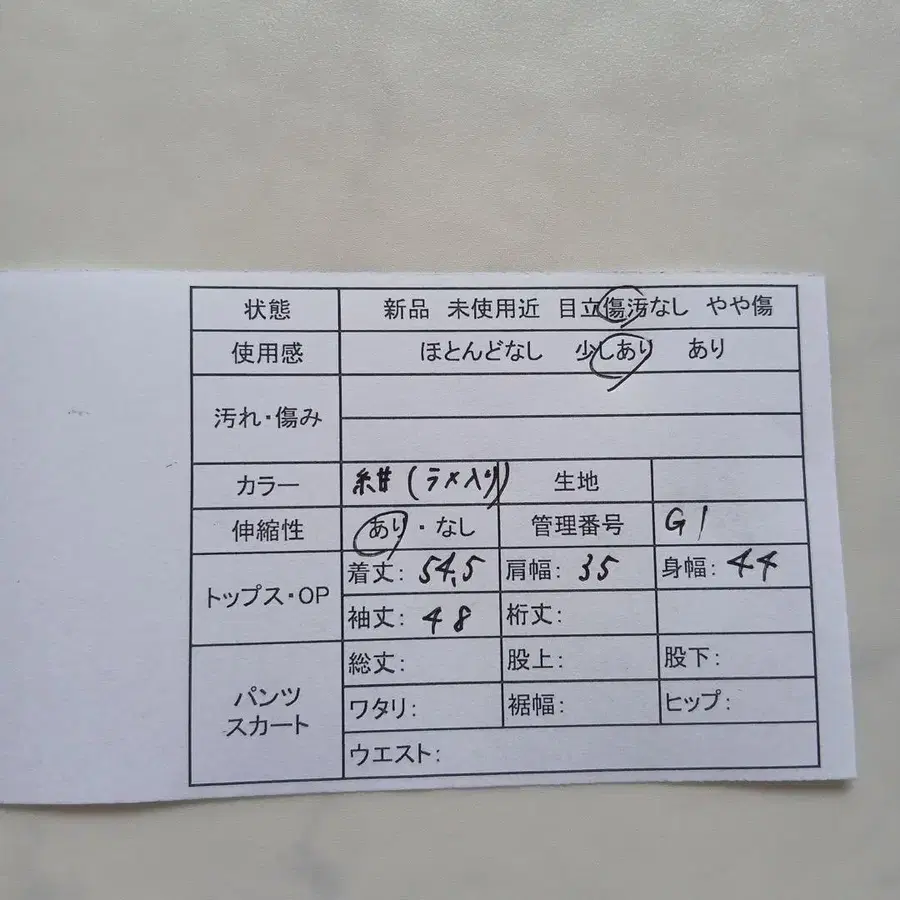 状態 新品 未使用近 目立傷汚なし やや傷
使用感 ほとんどなし 少しあり あり
汚れ・傷み
カラー 紺(ラメ入り) 生地
伸縮性 あり・なし 管理番号 G1
トップス・OP 着丈: 54.5 肩幅: 35 身幅: 44
袖丈: 48 裄丈:
パンツ
スカート
総丈: 股上: 股下:
ワタリ: 裾幅: ヒップ:
ウエスト: